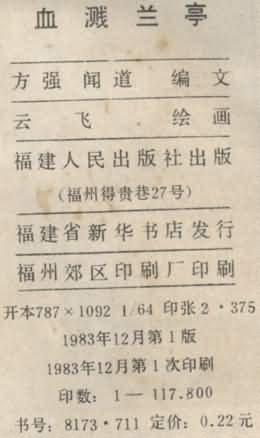 血溅兰亭
方强 闻道 编文
云飞 绘画
福建人民出版社出版
(福州得贵巷27号)
福建省新华书店发行
福州郊区印刷厂印刷
开本787×1092 1/64 印张2·375
1983年12月第1版
1983年12月第1次印刷
印数：1—117.800
书号：8173·711 定价：0.22元